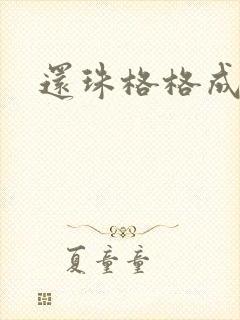 還珠格格成
夏童童